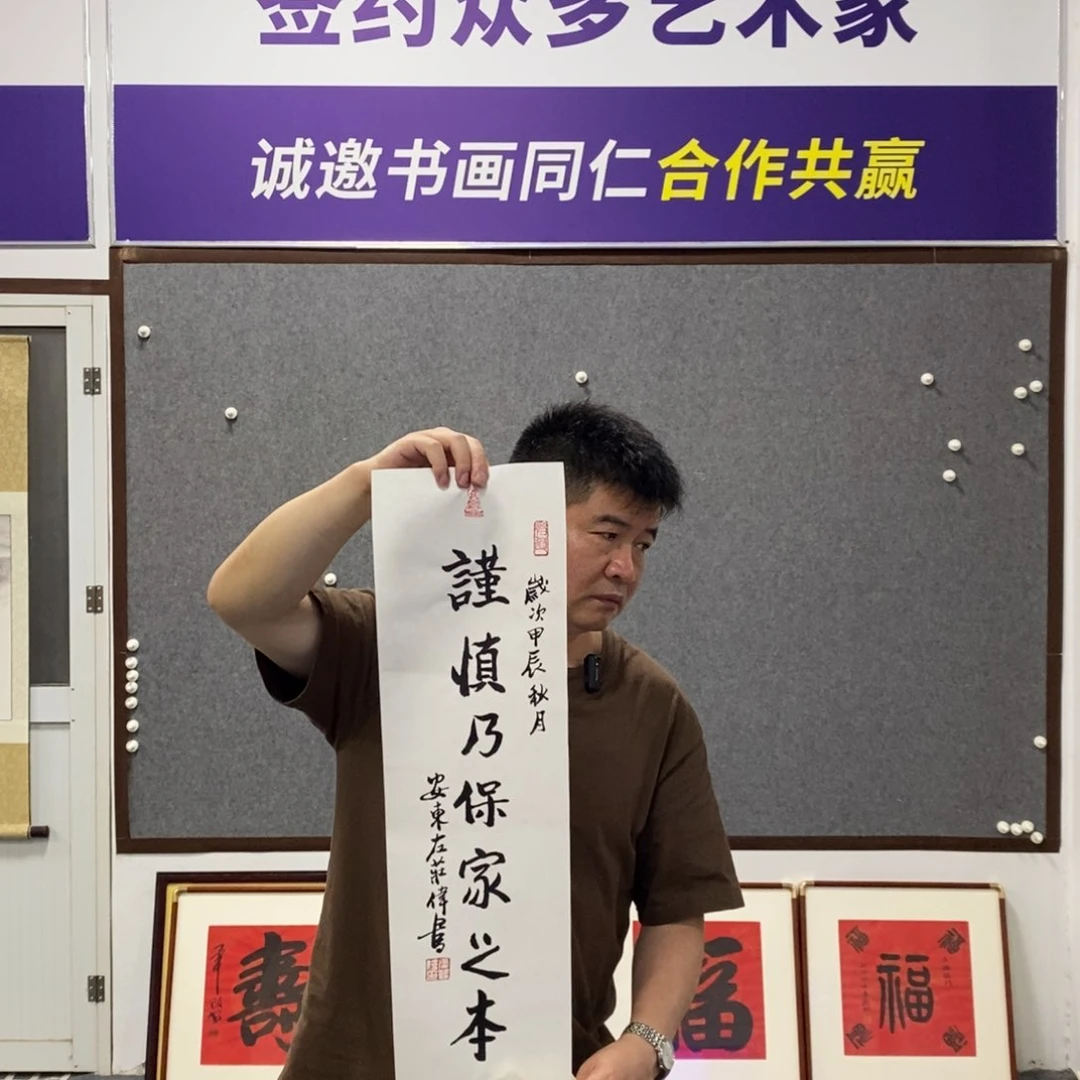 签约众多艺术家
诚邀书画同仁合作共赢
歲次甲辰秋月
謹慎乃保家之本
安東左莊偉書
壽
福
福